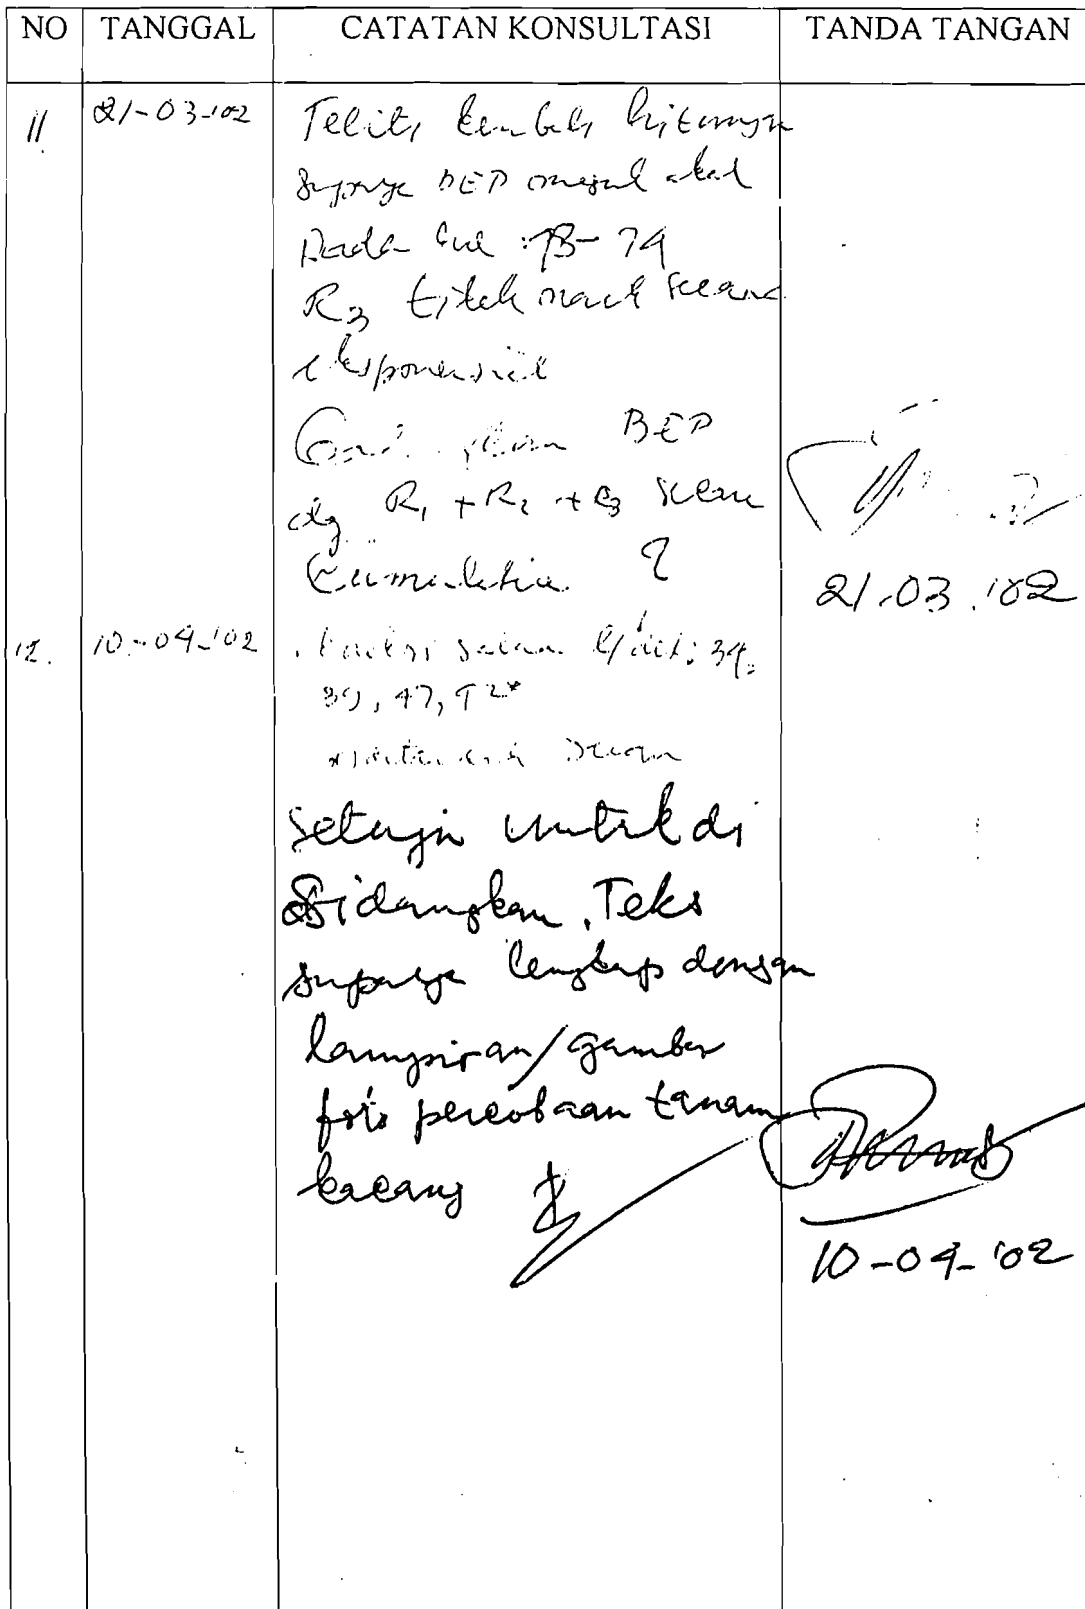 NO TANGGAL CATATAN KONSULTASI TANDA TANGAN
11. 21-03-'02 Teliti kembali hitungan
supaya BEP masuk akal
Pada hal : 73-74
R3 tidak naik secara
eksponensial
BEP
dg R1 + R2 + R3 secara
Cumulative ?
21.03.'02
12. 10-04-'02 34,
39, 47,
setuju untuk di
sidangkan. Teks
supaya lengkap dengan
lampiran/gambar
foto percobaan tanam
kacang
10-04-'02